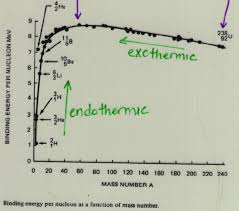 4
2He
238
92U
11
5B
10
5Be
6
3Li
exothermic
endothermic
3
2He
2
1H
BINDING ENERGY PER NUCLEON MeV
9
8
7
6
5
4
3
2
1
0
0 20 40 60 80 100 120 140 160 180 200 220 240
MASS NUMBER A
Binding energy per nucleon as a function of mass number.